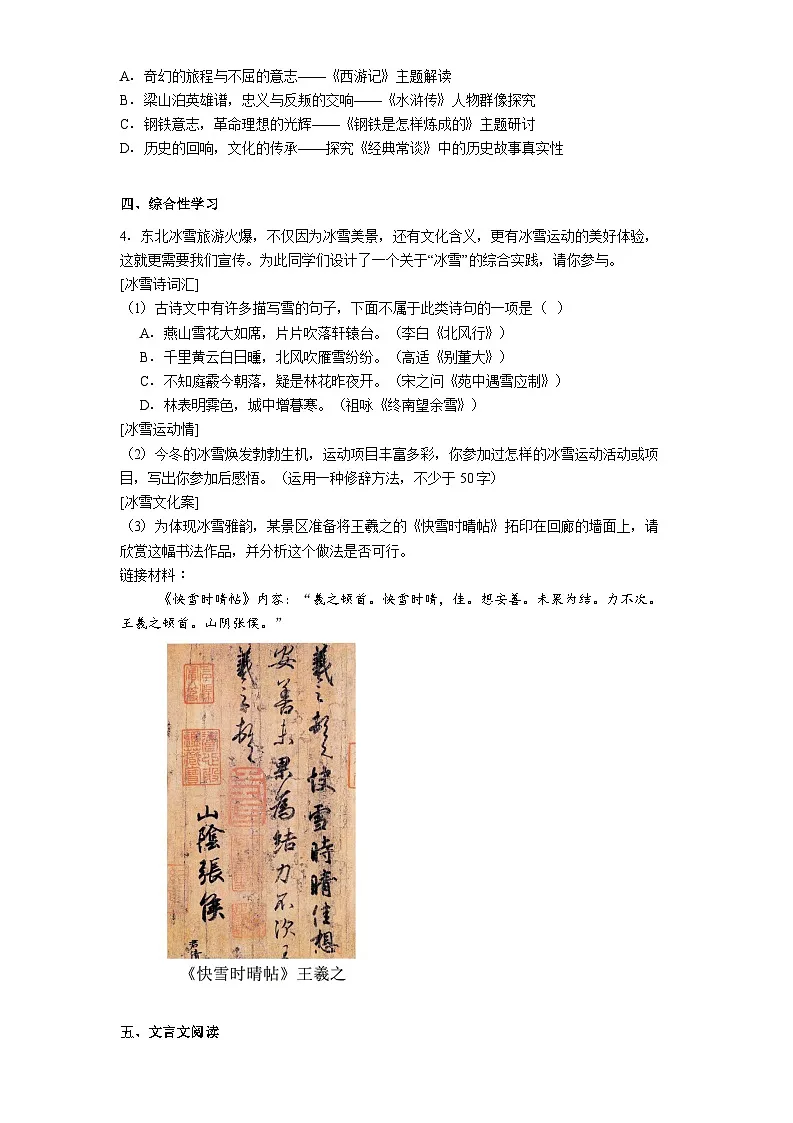 A．奇幻的旅程与不屈的意志——《西游记》主题解读
B．梁山泊英雄谱，忠义与反叛的交响——《水浒传》人物群像探究
C．钢铁意志，革命理想的光辉——《钢铁是怎样炼成的》主题研讨
D．历史的回响，文化的传承——探究《经典常谈》中的历史故事真实性
四、综合性学习
4．东北冰雪旅游火爆，不仅因为冰雪美景，还有文化含义，更有冰雪运动的美好体验，
这就更需要我们宣传。为此同学们设计了一个关于“冰雪”的综合实践，请你参与。
[冰雪诗词汇]
（1）古诗文中有许多描写雪的句子，下面不属于此类诗句的一项是（ ）
A．燕山雪花大如席，片片吹落轩辕台。（李白《北风行》）
B．千里黄云白日曛，北风吹雁雪纷纷。（高适《别董大》）
C．不知庭霰今朝落，疑是林花昨夜开。（宋之问《苑中遇雪应制》）
D．林表明霁色，城中增暮寒。（祖咏《终南望余雪》）
[冰雪运动情]
（2）今冬的冰雪焕发勃勃生机，运动项目丰富多彩，你参加过怎样的冰雪运动活动或项
目，写出你参加后感悟。（运用一种修辞方法，不少于 50 字）
[冰雪文化案]
（3）为体现冰雪雅韵，某景区准备将王羲之的《快雪时晴帖》拓印在回廊的墙面上，请
欣赏这幅书法作品，并分析这个做法是否可行。
链接材料：
《快雪时晴帖》内容：“羲之顿首。快雪时晴，佳。想安善。未果为结。力不次。
王羲之顿首。山阴张侯。”
羲之頓首快雪時晴佳想
安善未果為結力不次王
羲之頓首
山陰張侯
《快雪时晴帖》王羲之
五、文言文阅读